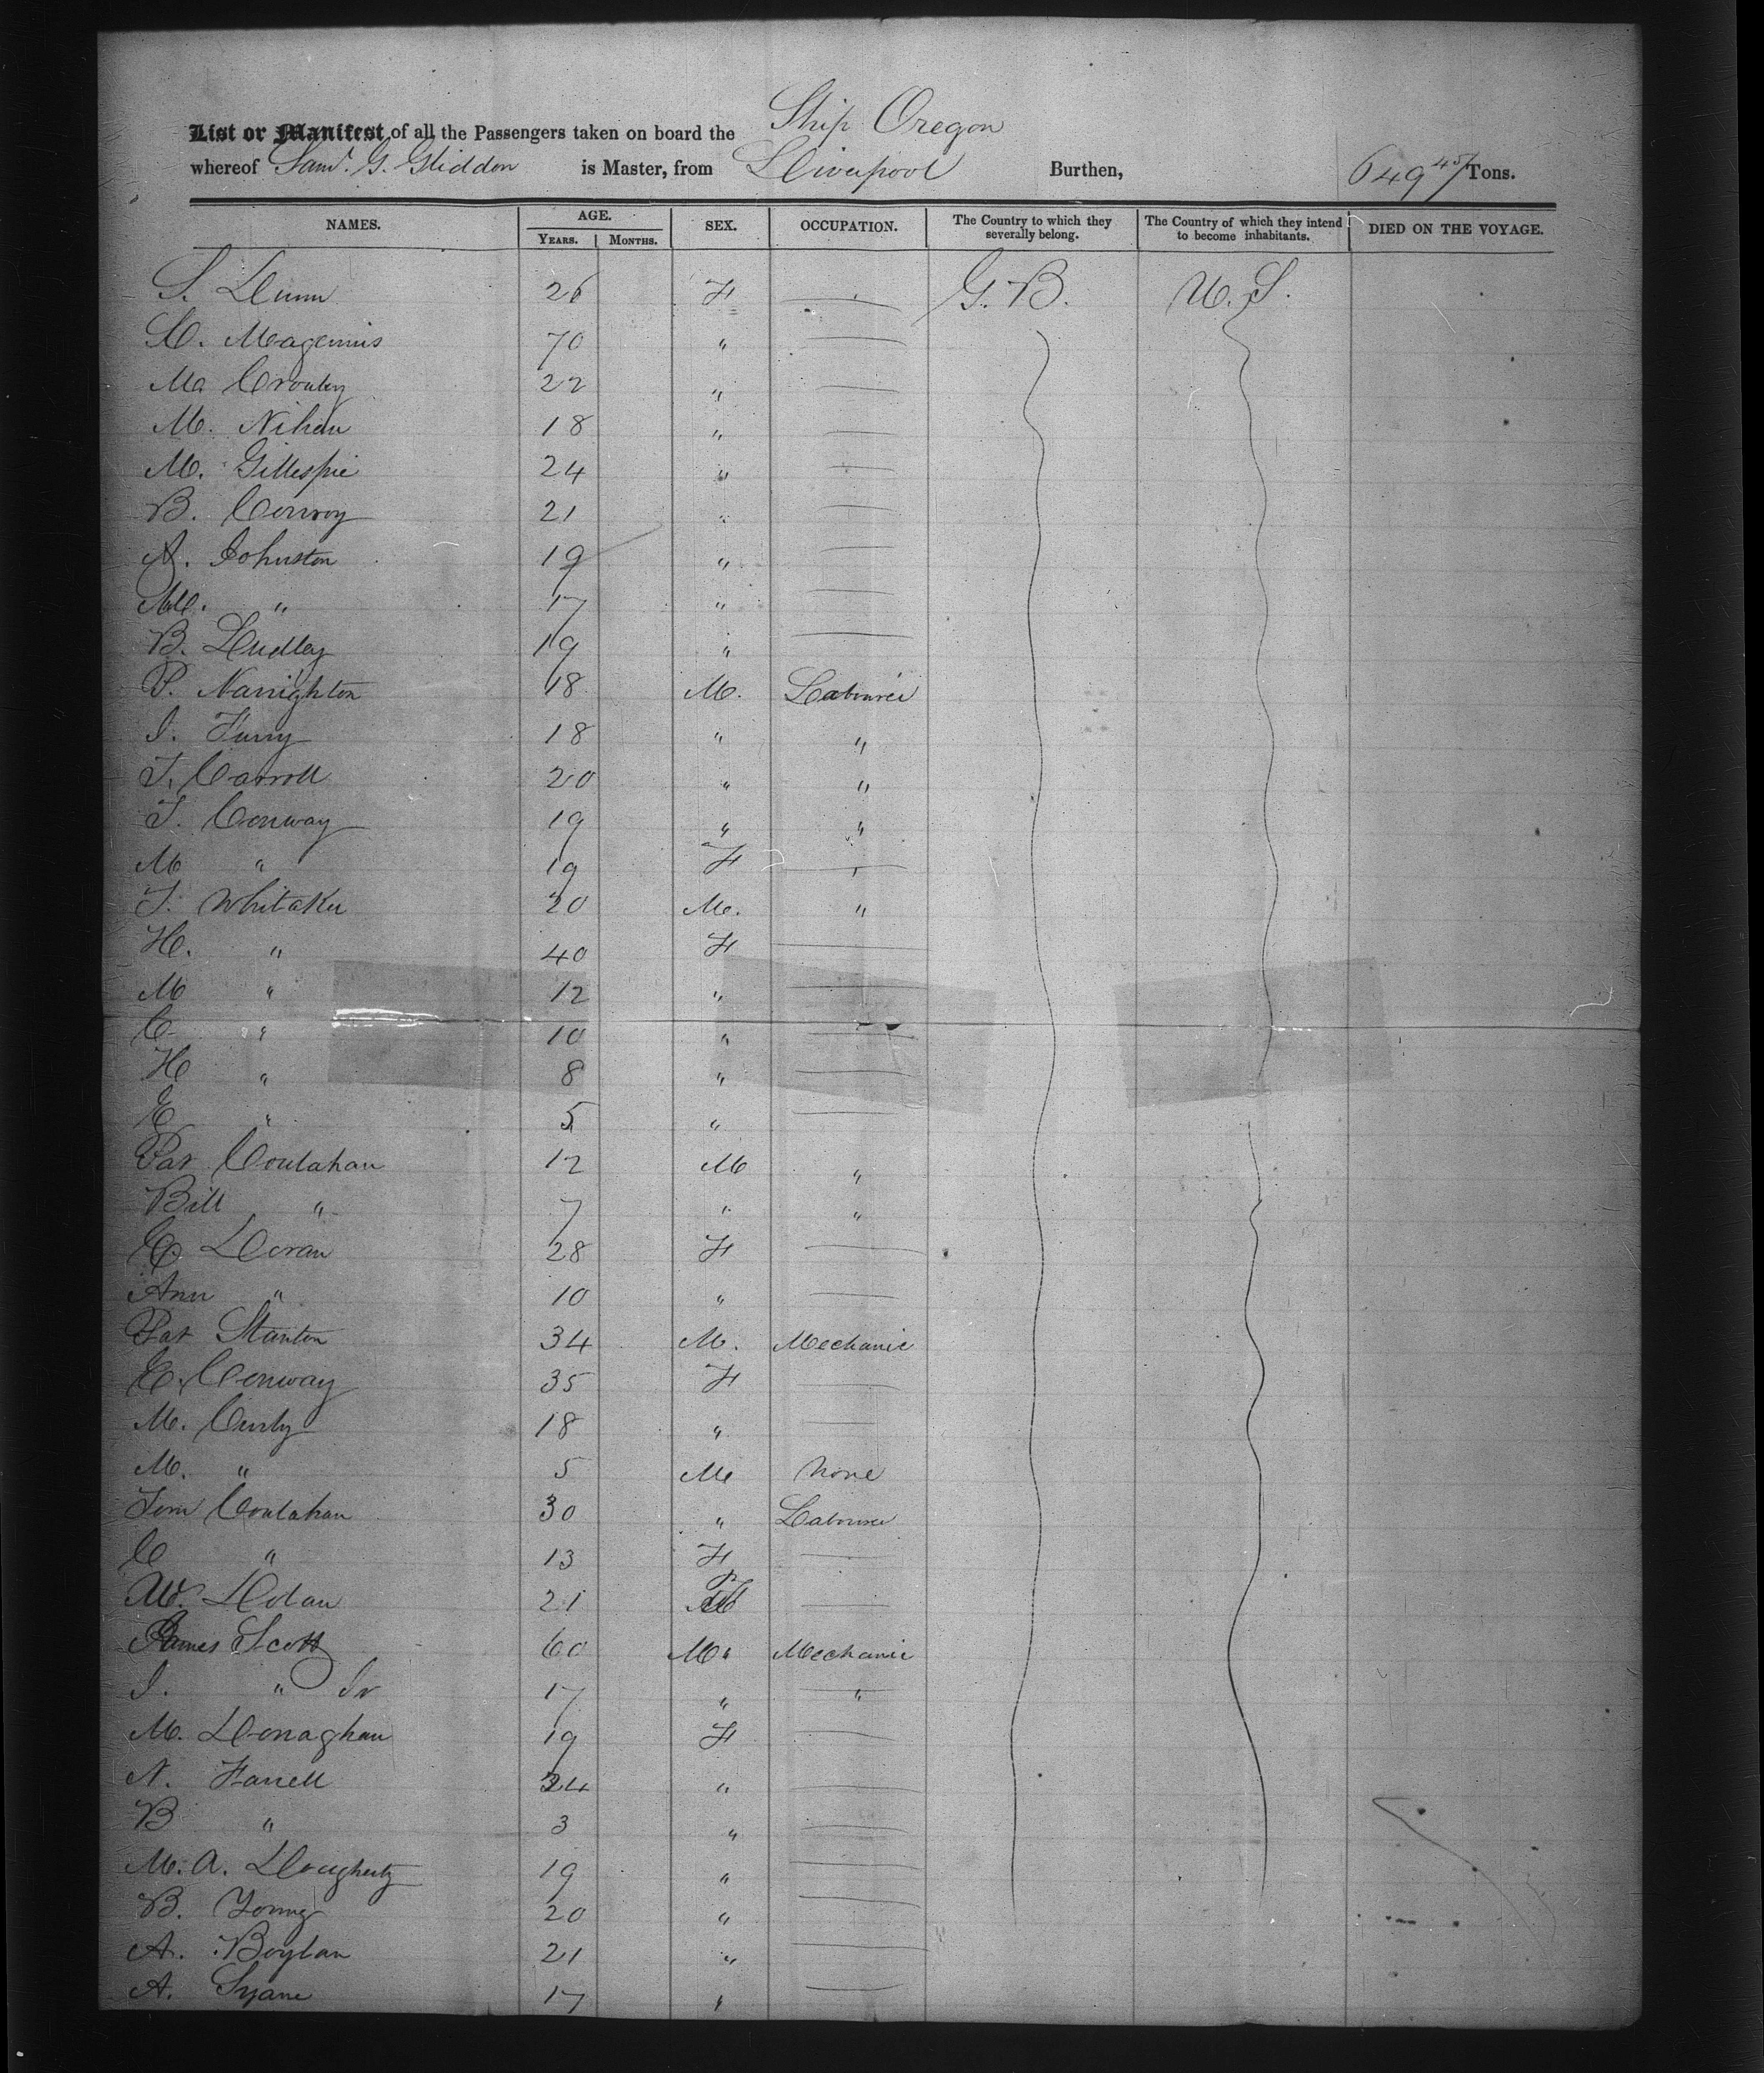 Ship Oregon
List or Manifest of all the Passengers taken on board the
whereof Saml. G. Gliddon is Master, from Liverpool Burthen, 649 45/ Tons.
NAMES. AGE. SEX. OCCUPATION. The Country to which they severally belong. The Country of which they intend to become inhabitants. DIED ON THE VOYAGE.
YEARS. MONTHS.
S. Dunn 26 F — G. B. U. S.
C. Magennis 70 " —
Ma Crowley 22 " —
M. Nihan 18 " —
M. Gillespie 24 " —
B. Conroy 21 " —
A. Johnston 19 " —
M. " 17 " —
B. Dudley 19 " —
P. Narrighton 18 M. Labourer
J. Furry 18 " "
T. Carroll 20 " "
T. Conway 19 " "
M " 19 F —
T. Whitaker 20 M. "
H. " 40 F —
M " 12 " —
C " 10 " —
H " 8 " —
E " 5 " —
Pat Coulahan 12 M "
Bill " 7 " "
C. Doran 28 F —
Ann " 10 " —
Pat Stanton 34 M. Mechanic
C. Conway 35 F —
M. Curly 18 " —
M. " 5 M None
Tom Coulahan 30 " Labourer
C " 13 F —
W. Dolan 21 F —
James Scott 60 M. Mechanic
J. " Jr 17 " "
M. Donaghan 19 F —
N. Farrell 24 " —
B " 3 " —
M. A. Dougherty 19 " —
B. Young 20 " —
A. Boylan 21 " —
A. Syane 17 " —